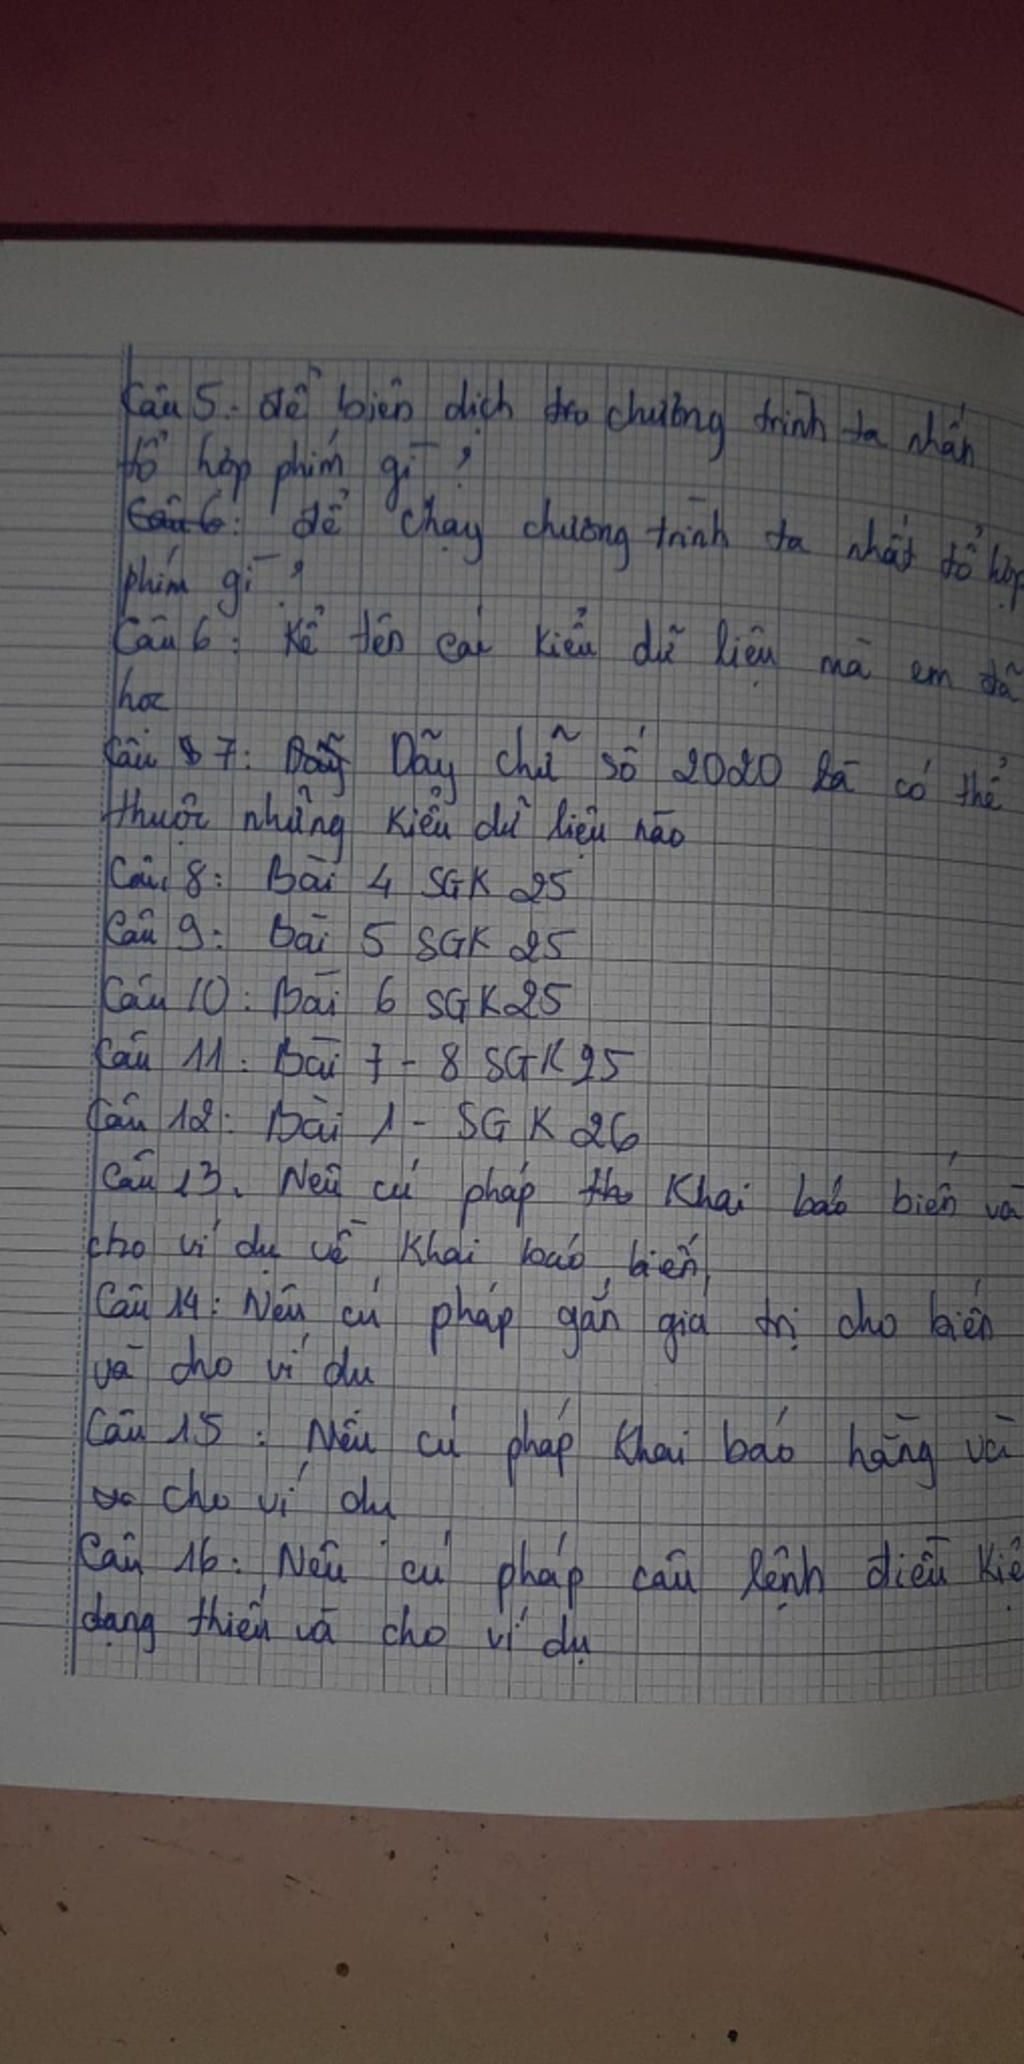 Câu 5. để biên dịch chương trình ta nhấn
tổ hợp phím gì?
Câu 6: để chạy chương trình ta nhất tổ hợp
phím gì?
Câu 6: Kể tên các kiểu dữ liệu mà em đã
học
Câu 7: Dãy chữ số 2020 là có thể
thuộc những kiểu dữ liệu nào
Câu 8: Bài 4 SGK 25
Câu 9: Bài 5 SGK 25
Câu 10: Bài 6 SGK 25
Câu 11: Bài 7 - 8 SGK 25
Câu 12: Bài 1 - SGK 26
Câu 13. Nêu cú pháp khai báo biến và
cho ví dụ về khai báo biến,
Câu 14: Nêu cú pháp gán giá trị cho biến
và cho ví dụ
Câu 15: Nêu cú pháp khai báo hằng và
cho ví dụ
Câu 16: Nêu cú pháp câu lệnh điều kiệ
dạng thiếu và cho ví dụ